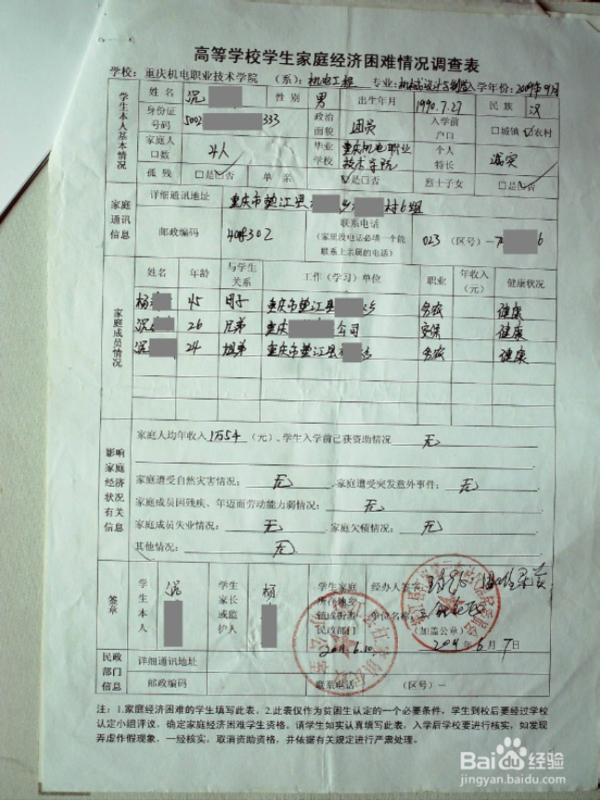 高等学校学生家庭经济困难情况调查表
学校：重庆机电职业技术学院 （系）：机电工程 专业：机械设计与制造 入学年份：2009年9月
学生本人基本情况
姓名 沉 性别 男 出生年月 1990.7.27 民族 汉
身份证号码 5002 333 政治面貌 团员 入学前户口 □城镇 □农村
家庭人口数 4人 毕业学校 重庆机电职业技术学院 个人特长 诚实
孤残 □是□否 单亲 □是□否 烈士子女 □是□否
家庭通讯信息
详细通讯地址 重庆市垫江县 乡 村6组
邮政编码 408302 联系电话 （家里没电话必填一个能联系上亲属的电话） 023 （区号）-7 6
家庭成员情况
姓名 年龄 与学生关系 工作（学习）单位 职业 年收入（元） 健康状况
杨 45 母子 重庆市垫江县 务农 健康
沉 26 兄弟 重庆 公司 安保 健康
沉 24 姐弟 重庆市垫江县 务农 健康
影响家庭经济状况有关信息
家庭人均年收入 1万54 （元）、学生入学前已获资助情况 无
家庭遭受自然灾害情况： 无 、家庭遭受突发意外事件： 无
家庭成员因残疾、年迈而劳动能力弱情况： 无
家庭成员失业情况： 无 家庭欠债情况： 无
其他情况： 无
签章
学生本人 沉 学生家长或监护人 杨 学生家庭所在地乡镇或街道民政部门 经办人签字：
单位名称：
（加盖公章）
2011年6月7日
民政部门信息
详细通讯地址
邮政编码 联系电话 （区号）-
注：1.家庭经济困难的学生填写此表。2.此表仅作为贫困生认定的一个必要条件，学生到校后要经过学校
认定小组评议，确定家庭经济困难学生资格。请学生如实认真填写此表，入学后学校要进行核实，如发现
弄虚作假现象，一经核实，取消资助资格，并依据有关规定进行严肃处理。
Baidu经验
jingyan.baidu.com